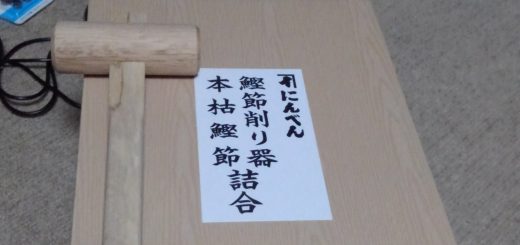 にんべん
鰹節削り器
本枯鰹節詰合